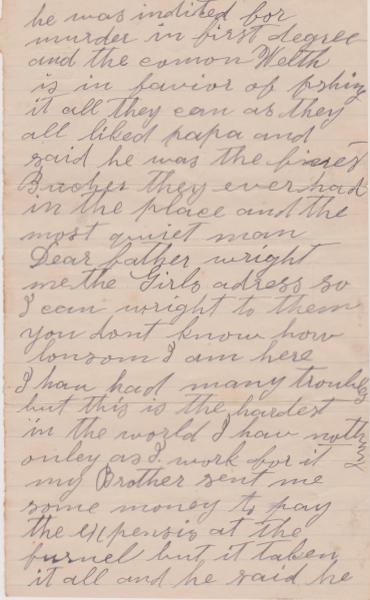 he was indited for
murder in first degree
and the comon Welth
is in favior of pshing
it all they can as they
all liked papa and
said he was the finest
Bucher they ever had
in the place and the
most quiet man
Dear father wright
me the Girls adress so
I can wright to them
you dont know how
lonsom I am here
I hav had many troubles
but this is the hardest
in the world I hav nothing
onley as I work for it
my Brother sent me
some money to pay
the expensis at the
furnel but it taken
it all and he said he